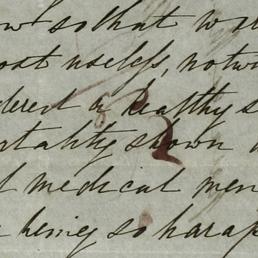 so that
most useless, notwi
a healthy s
tality shown
of medical men
being so harap